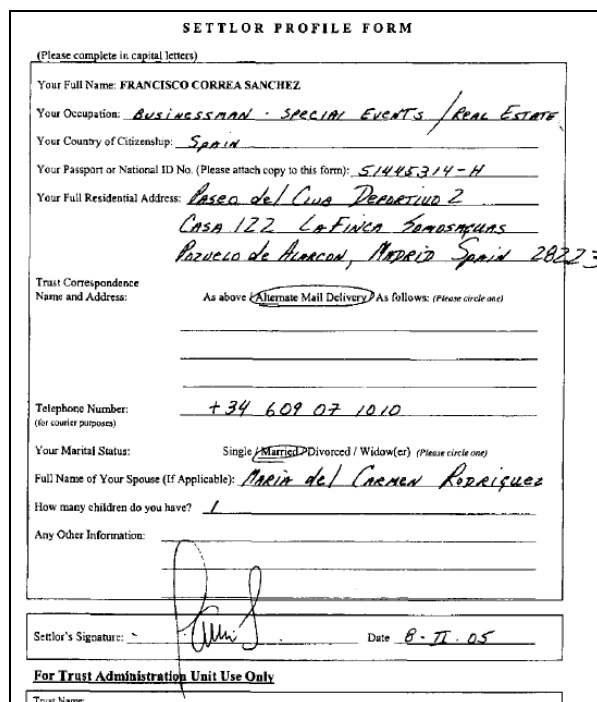 SETTLOR PROFILE FORM
(Please complete in capital letters)
Your Full Name: FRANCISCO CORREA SANCHEZ
Your Occupation: BUSINESSMAN - SPECIAL EVENTS / REAL ESTATE
Your Country of Citizenship: SPAIN
Your Passport or National ID No. (Please attach copy to this form): 51445314-H
Your Full Residential Address: PASEO del CLUB DEPORTIVO 2
CASA 122 LA FINCA SOMOSAGUAS
POZUELO de ALARCON, MADRID SPAIN 28223
Trust Correspondence
Name and Address: As above / Alternate Mail Delivery / As follows: (Please circle one)
Telephone Number: +34 609 07 1010
(for courier purposes)
Your Marital Status: Single / Married / Divorced / Widow(er) (Please circle one)
Full Name of Your Spouse (If Applicable): MARIA del CARMEN RODRIGUEZ
How many children do you have? 1
Any Other Information:
Settlor's Signature: Date 8-II-05
For Trust Administration Unit Use Only
Trust Name: